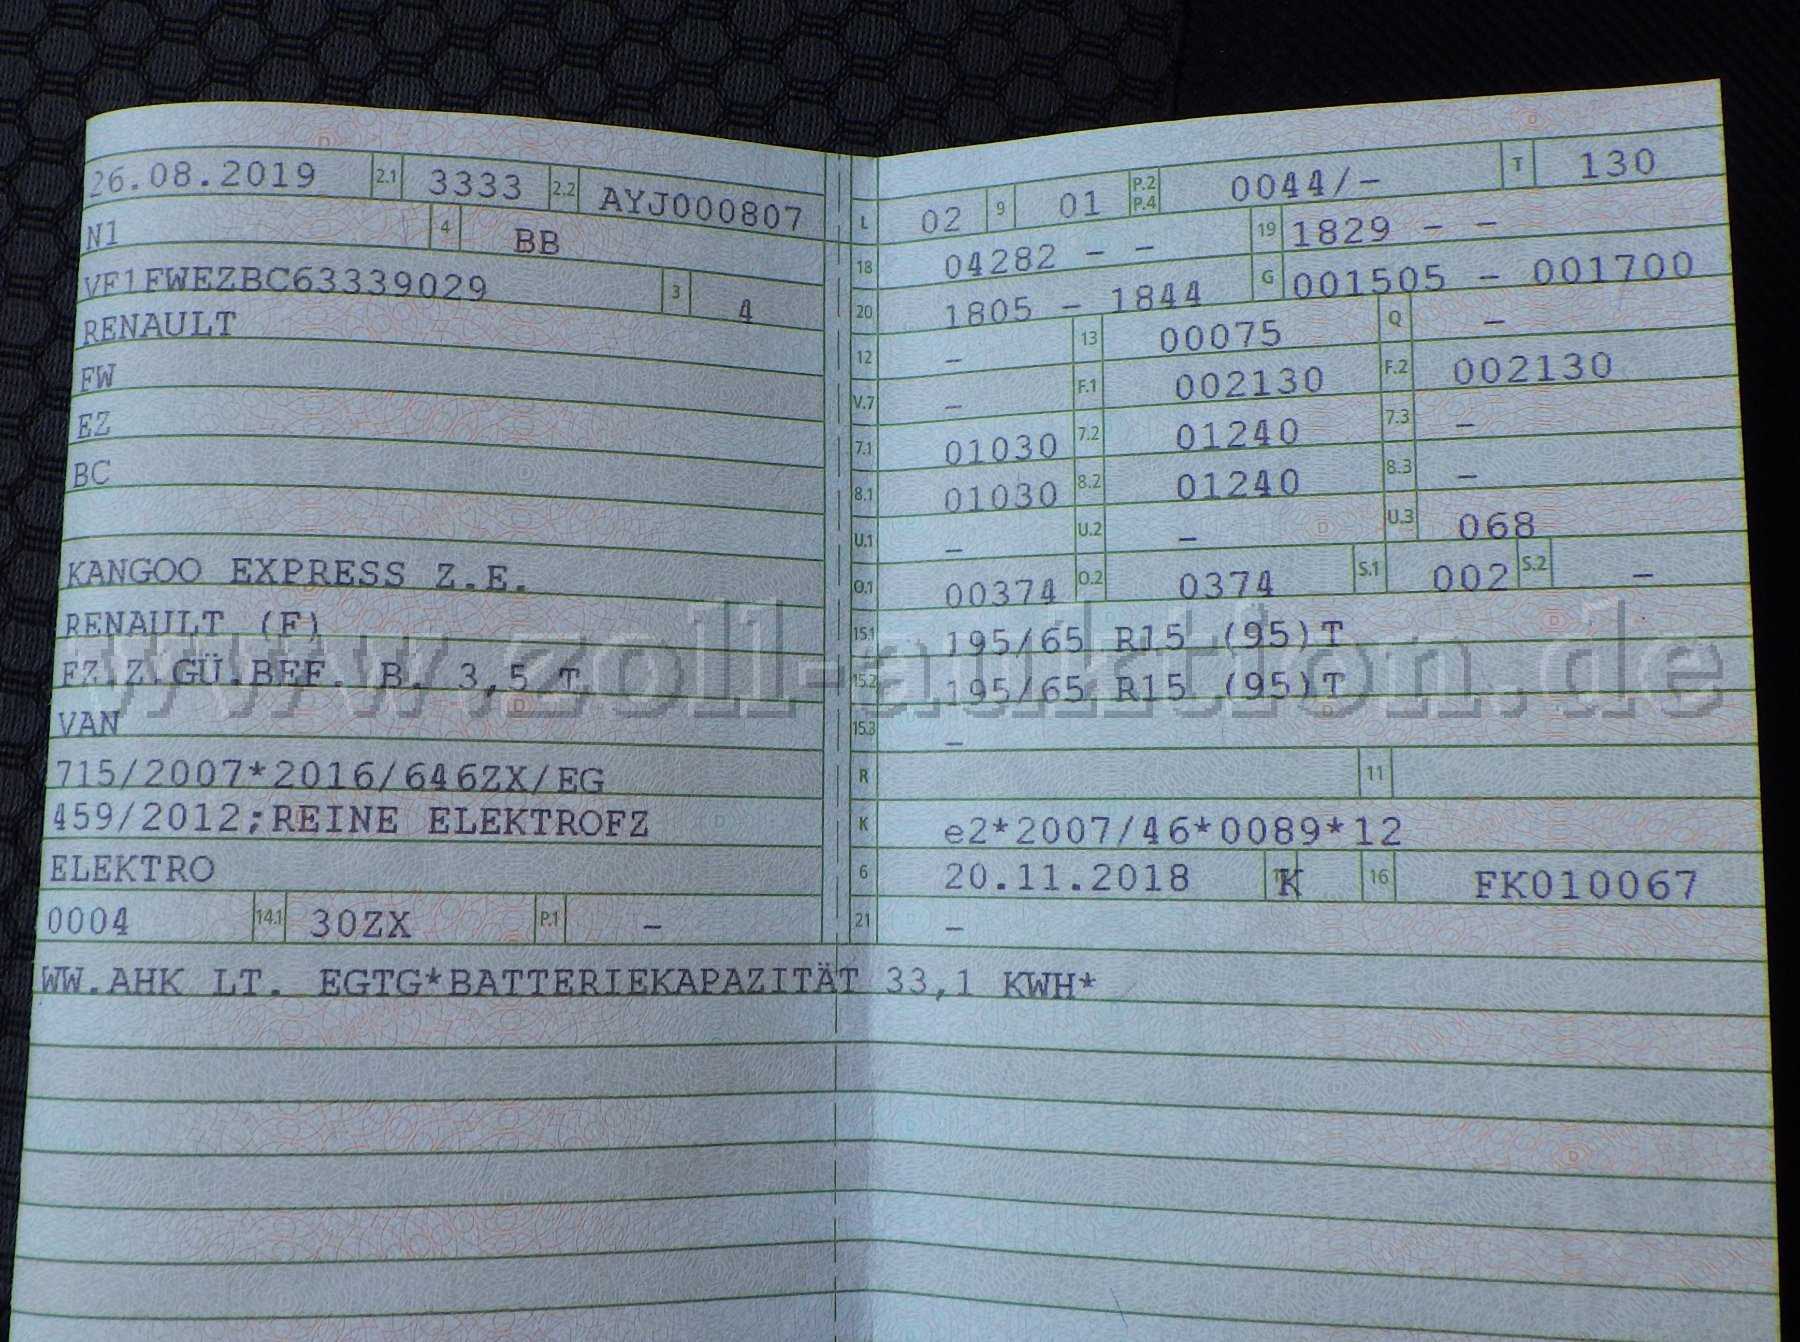 26.08.2019 2.1 3333 2.2 AYJ000807
N1 4 BB
VF1FWEZBC63339029 3 4
RENAULT
FW
EZ
BC
KANGOO EXPRESS Z.E.
RENAULT (F)
FZ.Z.GÜ.BEF. B. 3,5 T
VAN
715/2007*2016/646ZX/EG
459/2012;REINE ELEKTROFZ
ELEKTRO
0004 14.1 30ZX P.1 -
L 02 9 01 P.2 P.4 0044/- T 130
18 04282 - - 19 1829 - -
20 1805 - 1844 G 001505 - 001700
12 - 13 00075 Q -
V.7 - F.1 002130 F.2 002130
7.1 01030 7.2 01240 7.3 -
8.1 01030 8.2 01240 8.3 -
U.1 - U.2 - U.3 068
O.1 00374 O.2 0374 S.1 002 S.2 -
15.1 195/65 R15 (95)T
15.2 195/65 R15 (95)T
15.3 -
R 11
K e2*2007/46*0089*12
6 20.11.2018 K 16 FK010067
21 -
WW.AHK LT. EGTG*BATTERIEKAPAZITÄT 33,1 KWH*
www.zoll-auktion.de